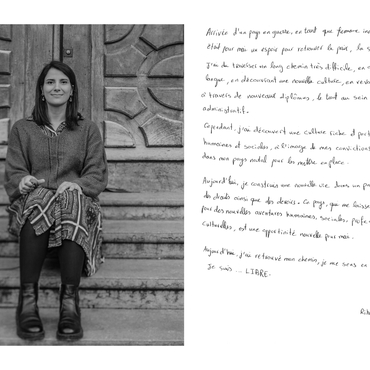 Arrivée d'un pays en guerre, en tant que femme in
était pour moi un espoir pour retrouver la paix, la s
J'ai dû traverser un long chemin très difficile, en
langue, en découvrant une nouvelle culture, en
à travers de nouveaux diplômes, le tout au sein
administratif.
Cependant, j'ai découvert une culture riche et
humaines et sociales, à l'image de mes convictions
dans mon pays natal pour les mettre en place.
Aujourd'hui, je construis une nouvelle vie dans un
des droits ainsi que des devoirs. Ce pays, qui me laisse
pour des nouvelles aventures humaines, sociales, profe
culturelles, est une opportunité nouvelle pour moi.
Aujourd'hui, j'ai retrouvé mon chemin, je me sens en
Je suis ... LIBRE.